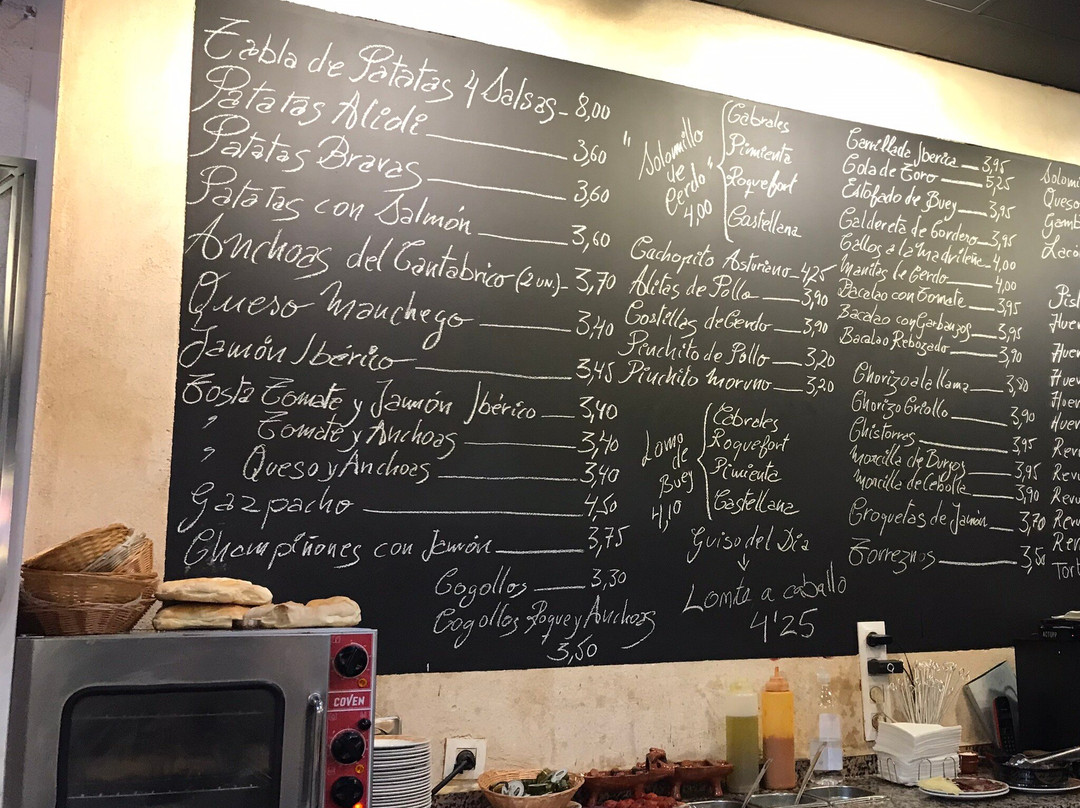 Tabla de Patatas 4 Salsas - 8,00
Patatas Alioli 3,60
Patatas Bravas 3,60
Patatas con Salmón 3,60
Anchoas del Cantabrico (2 un.) - 3,70
Queso Manchego 3,40
Jamón Ibérico 3,45
Tosta Tomate y Jamón Ibérico 3,40
" Tomate y Anchoas 3,40
" Queso y Anchoas 3,40
Gazpacho 4,50
Champiñones con Jamón 3,75
Cogollos 3,30
Cogollos Roque y Anchoas
3,50
"Solomillo
de
Cerdo"
4,00
Cabrales
Pimienta
Roquefort
Castellana
Cachopito Asturiano 4,25
Alitas de Pollo 3,90
Costillas de Cerdo 3,90
Pinchito de Pollo 3,20
Pinchito Moruno 3,20
Lomo
de
Buey
4,10
Cabrales
Roquefort
Pimienta
Castellana
Guiso del Día
Lomito a caballo
4'25
Carrillada Iberica 3,95
Cola de Toro 5,25
Estofado de Buey 3,95
Caldereta de Cordero 3,95
Callos a la Madrileña 4,00
Manitas de Cerdo 4,00
Bacalao con Tomate 3,95
Bacalao con Garbanzos 3,95
Bacalao Rebozado 3,90
Chorizo a la llama 3,80
Chorizo Criollo 3,90
Chistorras 3,95
Morcilla de Burgos 3,95
Morcilla de Cebolla 3,90
Croquetas de Jamón 3,70
Torreznos 3,50
Solomi
Queso
Gamb
Lacó
Pist
Huev
Huev
Huev
Huev
Huev
Revu
Revu
Revu
Revu
Tort
COVEN